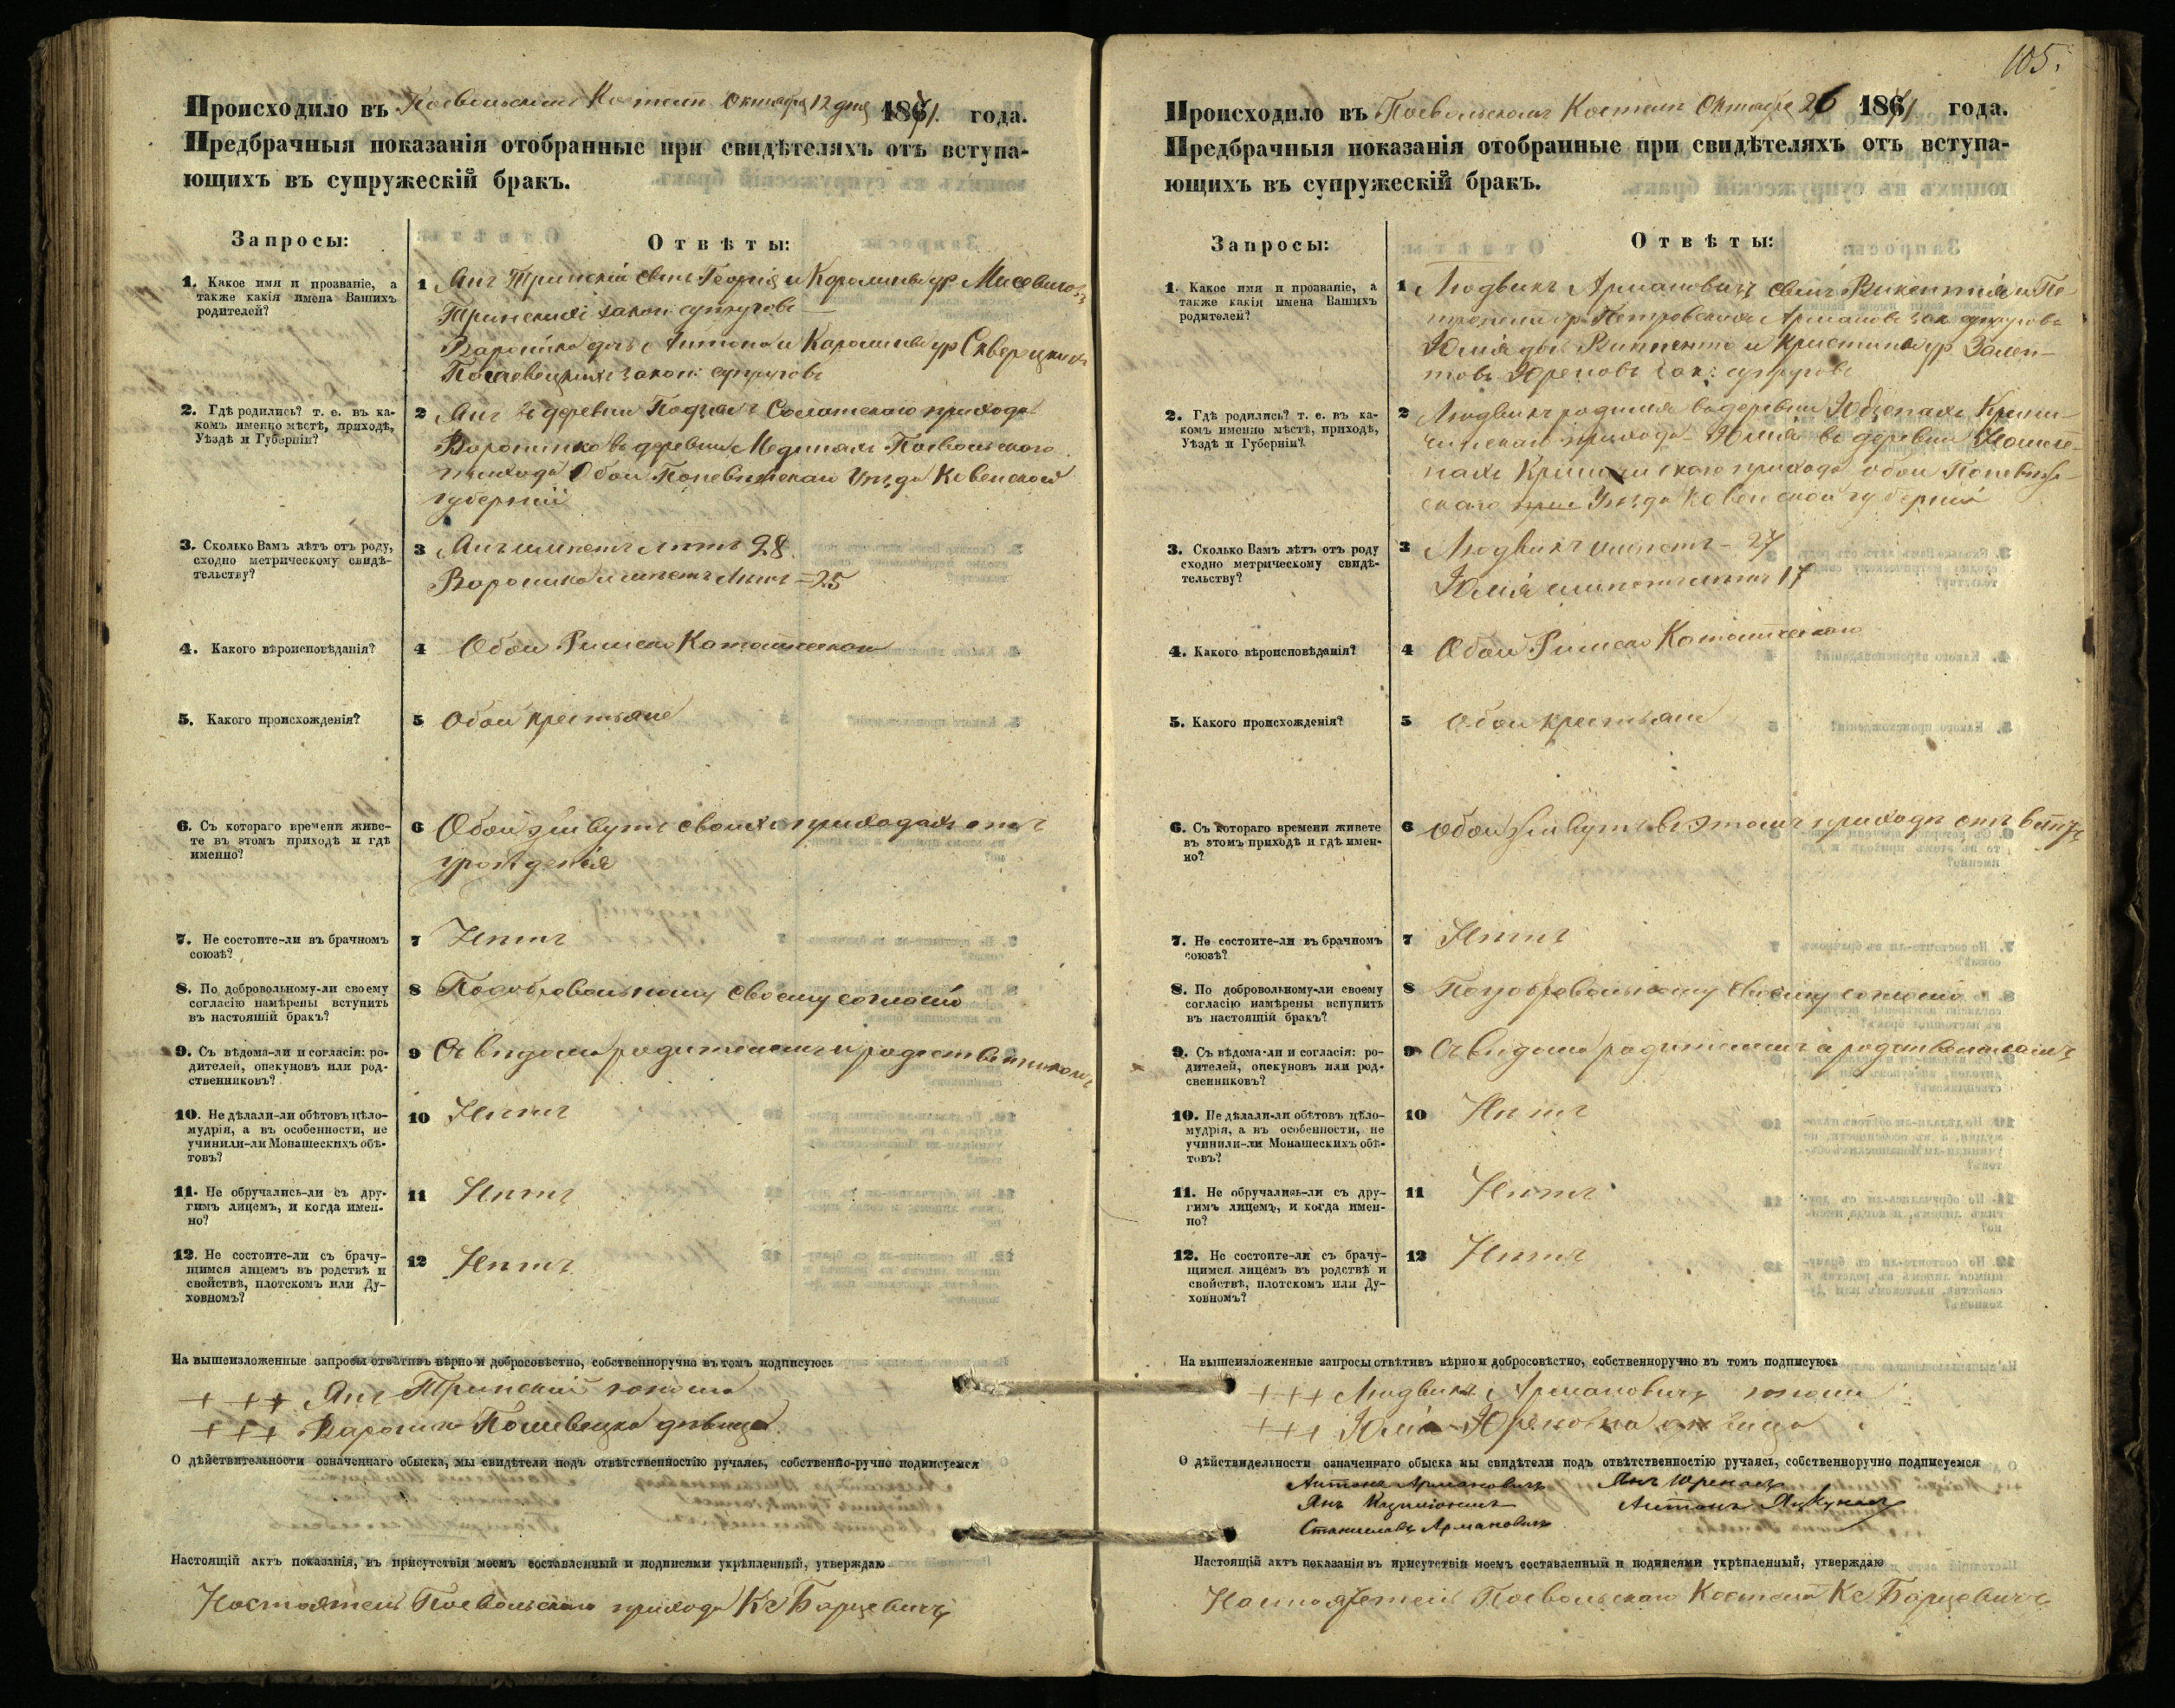 Происходило въ Поевольскомъ Костелѣ Октября 12 дня 1871 года.
Предбрачныя показанія отобранные при свидѣтеляхъ отъ вступа-
ющихъ въ супружескій бракъ.
Запросы:
Отвѣты:
1. Какое имя и прозваніе, а
также какія имена Вашихъ
родителей?
1 Янъ Тринскій сынъ Георгія и Каролины ур
Тринскихъ закон: супруговъ
дочь Антона и Каролины ур
закон: супруговъ
2. Гдѣ родились? т. е. въ ка-
комъ именно мѣстѣ, приходѣ,
Уѣздѣ и Губерніи?
2 Янъ въ деревни прихода
въ деревни Поевольского
прихода Обои Поневѣжскаго Уѣзда Ковенской
губерніи
3. Сколько Вамъ лѣтъ отъ роду,
сходно метрическому свидѣ-
тельству?
3 Янъ имѣетъ лѣтъ 28
имѣетъ лѣтъ = 25
4. Какого вѣроисповѣданія?
4 Обои Римско Католическаго
5. Какого происхожденія?
5 Обои крестьяне
6. Съ котораго времени живе-
те въ этомъ приходѣ и гдѣ
именно?
6 Обои живутъ своихъ приходахъ отъ
урожденія
7. Не состоите-ли въ брачномъ
союзѣ?
7 Нѣтъ
8. По добровольному-ли своему
согласію намѣрены вступить
въ настоящій бракъ?
8 По добровольному своему согласію
9. Съ вѣдома-ли и согласія: ро-
дителей, опекуновъ или род-
ственниковъ?
9 Съ вѣдома родителей и родственниковъ
10. Не дѣлали-ли обѣтовъ цѣло-
мудрія, а въ особенности, не
учинили-ли Монашескихъ обѣ-
товъ?
10 Нѣтъ
11. Не обручались-ли съ дру-
гимъ лицемъ, и когда имен-
но?
11 Нѣтъ
12. Не состоите-ли съ брачу-
щимся лицемъ въ родствѣ и
свойствѣ, плотскомъ или Ду-
ховномъ?
12 Нѣтъ
На вышеизложенные запросы отвѣтивъ вѣрно и добросовѣстно, собственноручно въ томъ подписуюсь
+ + + Янъ Тринскій юноша
+ + + дѣвица
О дѣйствительности означеннаго обыска, мы свидѣтели подъ отвѣтственностію ручаясь, собственно-ручно подписуемся
Настоящій актъ показанія, въ присутствіи моемъ составленный и подписями укрѣпленный, утверждаю
Настоятель Поевольскаго прихода Кс Барцевичъ
105.
Происходило въ Поевольскомъ Костелѣ Октября 26 1871 года.
Предбрачныя показанія отобранные при свидѣтеляхъ отъ вступа-
ющихъ въ супружескій бракъ.
Запросы:
Отвѣты:
1. Какое имя и прозваніе, а
также какія имена Вашихъ
родителей?
1 Людвикъ Армановичъ сынъ Викентія и Пе-
тронели ур Петровскихъ зак супруговъ
Юлія дочь и Кристины ур
Юреновъ зак: супруговъ
2. Гдѣ родились? т. е. въ ка-
комъ именно мѣстѣ, приходѣ,
Уѣздѣ и Губерніи?
2 Людвикъ родился въ деревни
прихода Юлія въ деревни
прихода обои Поневѣж-
скаго Уѣзда Ковенской губерніи
3. Сколько Вамъ лѣтъ отъ роду
сходно метрическому свидѣ-
тельству?
3 Людвикъ имѣетъ – 27
Юлія имѣетъ лѣтъ 17
4. Какого вѣроисповѣданія?
4 Обои Римско Католическаго
5. Какого происхожденія?
5 Обои крестьяне
6. Съ котораго времени живете
въ этомъ приходѣ и гдѣ имен-
но?
6 Обои живутъ въ этомъ приходѣ отъ
7. Не состоите-ли въ брачномъ
союзѣ?
7 Нѣтъ
8. По добровольному-ли своему
согласію намѣрены вспупить
въ настоящій бракъ?
8 По добровольному своему согласію
9. Съ вѣдома-ли и согласія: ро-
дителей, опекуновъ или род-
свенниковъ?
9 Съ вѣдома родителей и родственниковъ
10. Не дѣлали-ли обѣтовъ цѣло-
мудрія, а въ особенности, не
учинили-ли Монашескихъ обѣ-
товъ?
10 Нѣтъ
11. Не обручались-ли съ дру-
гимъ лицемъ, и когда имен-
но?
11 Нѣтъ
12. Не состоите-ли съ брачу-
щимся лицемъ въ родствѣ и
свойствѣ, плотскомъ или Ду-
ховномъ?
12 Нѣтъ
На вышеизложенные запросы отвѣтивъ вѣрно и добросовѣстно, собственноручно въ томъ подписуюсь
+ + + Людвикъ Армановичъ юноша
+ + + Юлія Юреновна дѣвица
О дѣйствидельности означеннаго обыска мы свидѣтели подъ отвѣтственностію ручаясь, собственноручно подписуемся
Антонъ Армановичъ Янъ Юренасъ
Янъ Антонъ
Станиславъ Армановичъ
Настоящій актъ показанія въ присутствіи моемъ составленный и подписями укрѣпленный, утверждаю
Настоятель Поевольскаго Костела Кс Барцевичъ